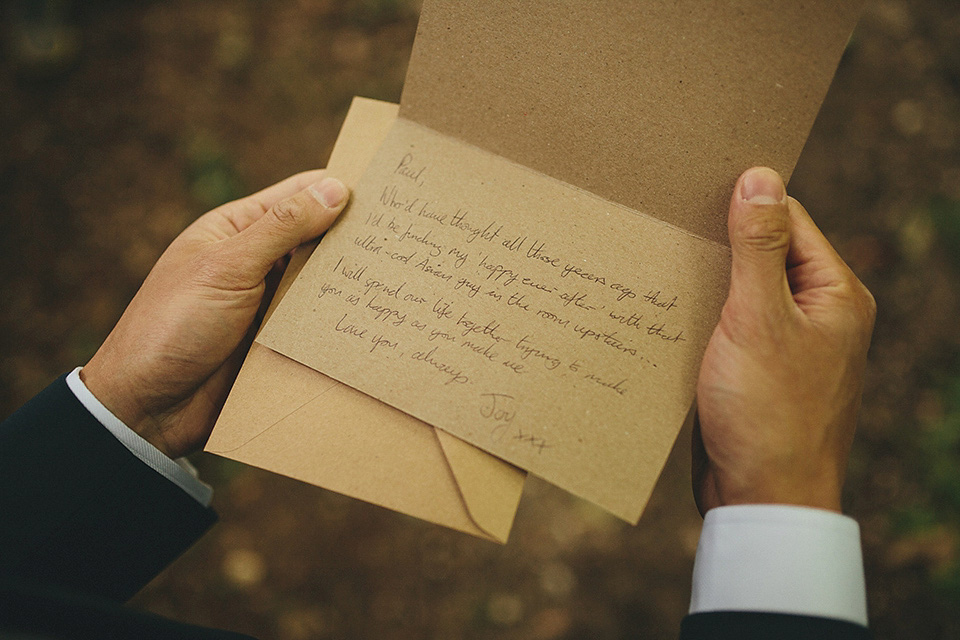 Paul,
Who'd have thought all those years ago that
I'd be finding my 'happy ever after' with that
ultra-cool Asian guy in the room upstairs...
I will spend our life together trying to make
you as happy as you make me
Love you, always.
Joy
xxx